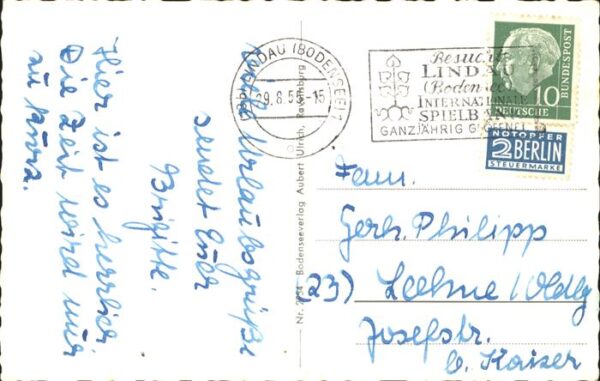 Hier ist es herrlich,
Die Zeit wird nur
zu kurz.
Viele Urlaubsgrüße
sendet Euer
Brigitte.
Nr. 2154 Bodenseeverlag Aubert Ulrich, Ravensburg
LINDAU (BODENSEE) 1
9.8.5 -15
Besucht
LINDAU
(Bodensee)
INTERNATIONALE
SPIELBANK
GANZJÄHRIG GEÖFFNET
DEUTSCHE BUNDESPOST
10
NOTOPFER
2 BERLIN
STEUERMARKE
Fam.
Gerh. Philipp
(23) Lohne / Oldbg
Josefstr.
b. Kaiser